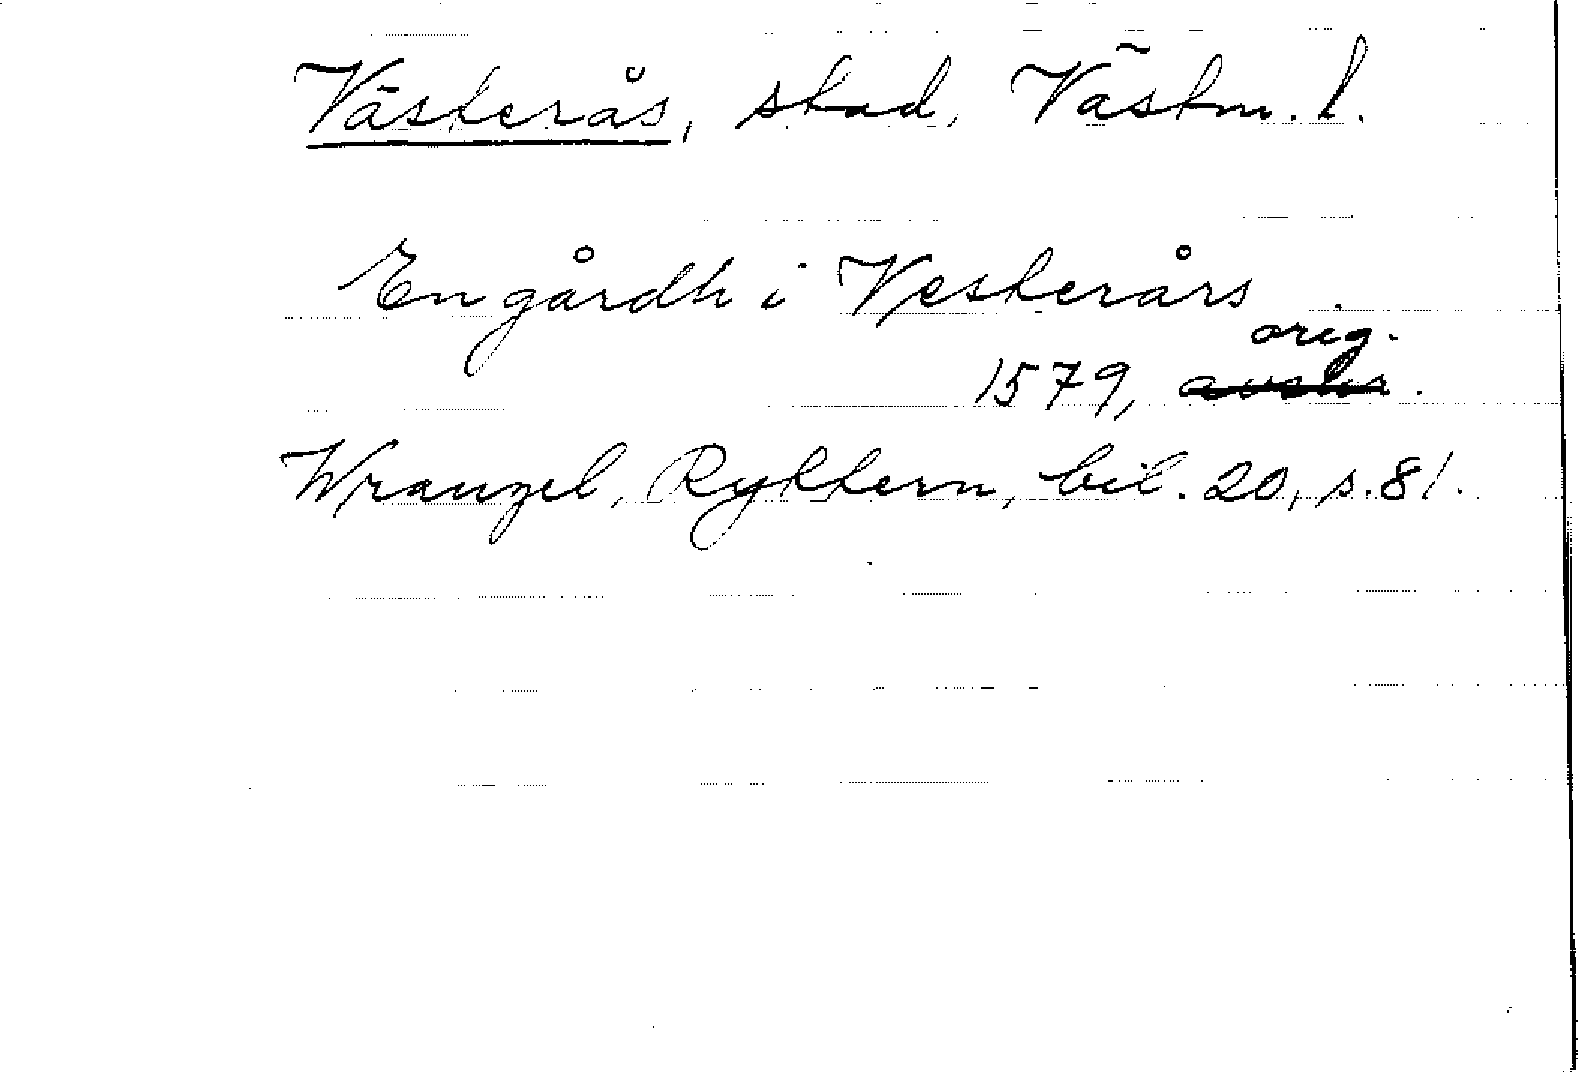 Västerås, stad, Västm. l.
En gårdh i Vesterårs
orig.
1579, avskr.
Wrangel, Ryttern, bil. 20, s. 81.